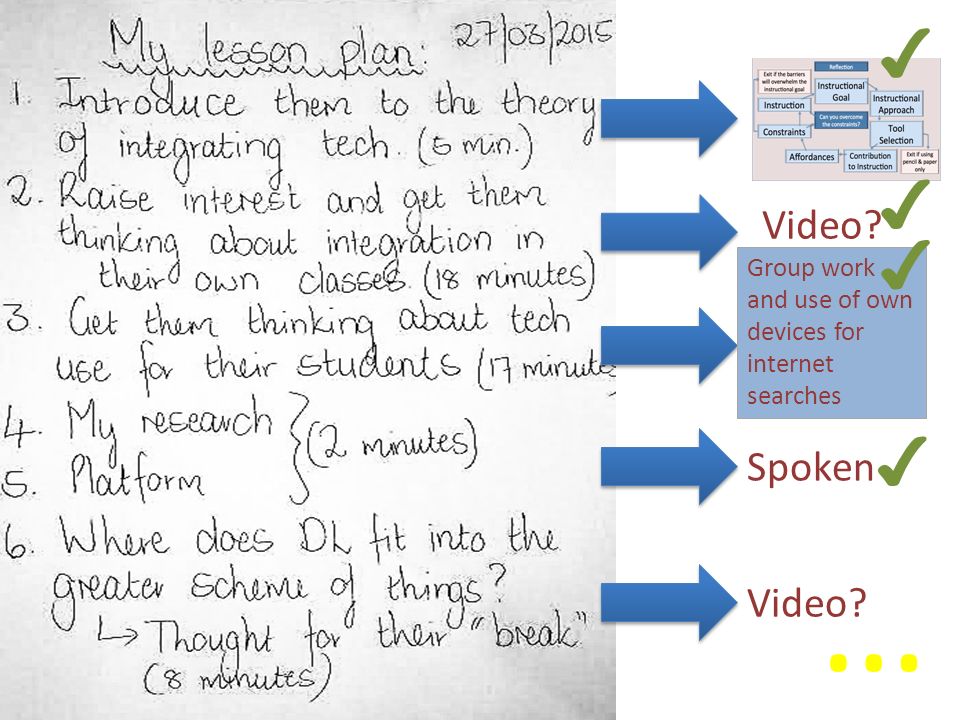 My lesson plan: 27/08/2015
1. Introduce them to the theory
of integrating tech. (5 min.)
2. Raise interest and get them
thinking about integration in
their own classes. (18 minutes)
3. Get them thinking about tech
use for their students (17 minutes
4. My research
5. Platform
(2 minutes)
6. Where does DL fit into the
greater scheme of things?
↳ Thought for their "break"
(8 minutes)
Reflection
Exit if the barriers
will overwhelm the
instructional goal
Instructional
Goal
Instruction
Instructional
Approach
Can you overcome
the constraints?
Constraints
Tool
Selection
Affordances
Contribution
to Instruction
Exit if using
pencil & paper
only
Video?
Group work
and use of own
devices for
internet
searches
Spoken
Video?
...